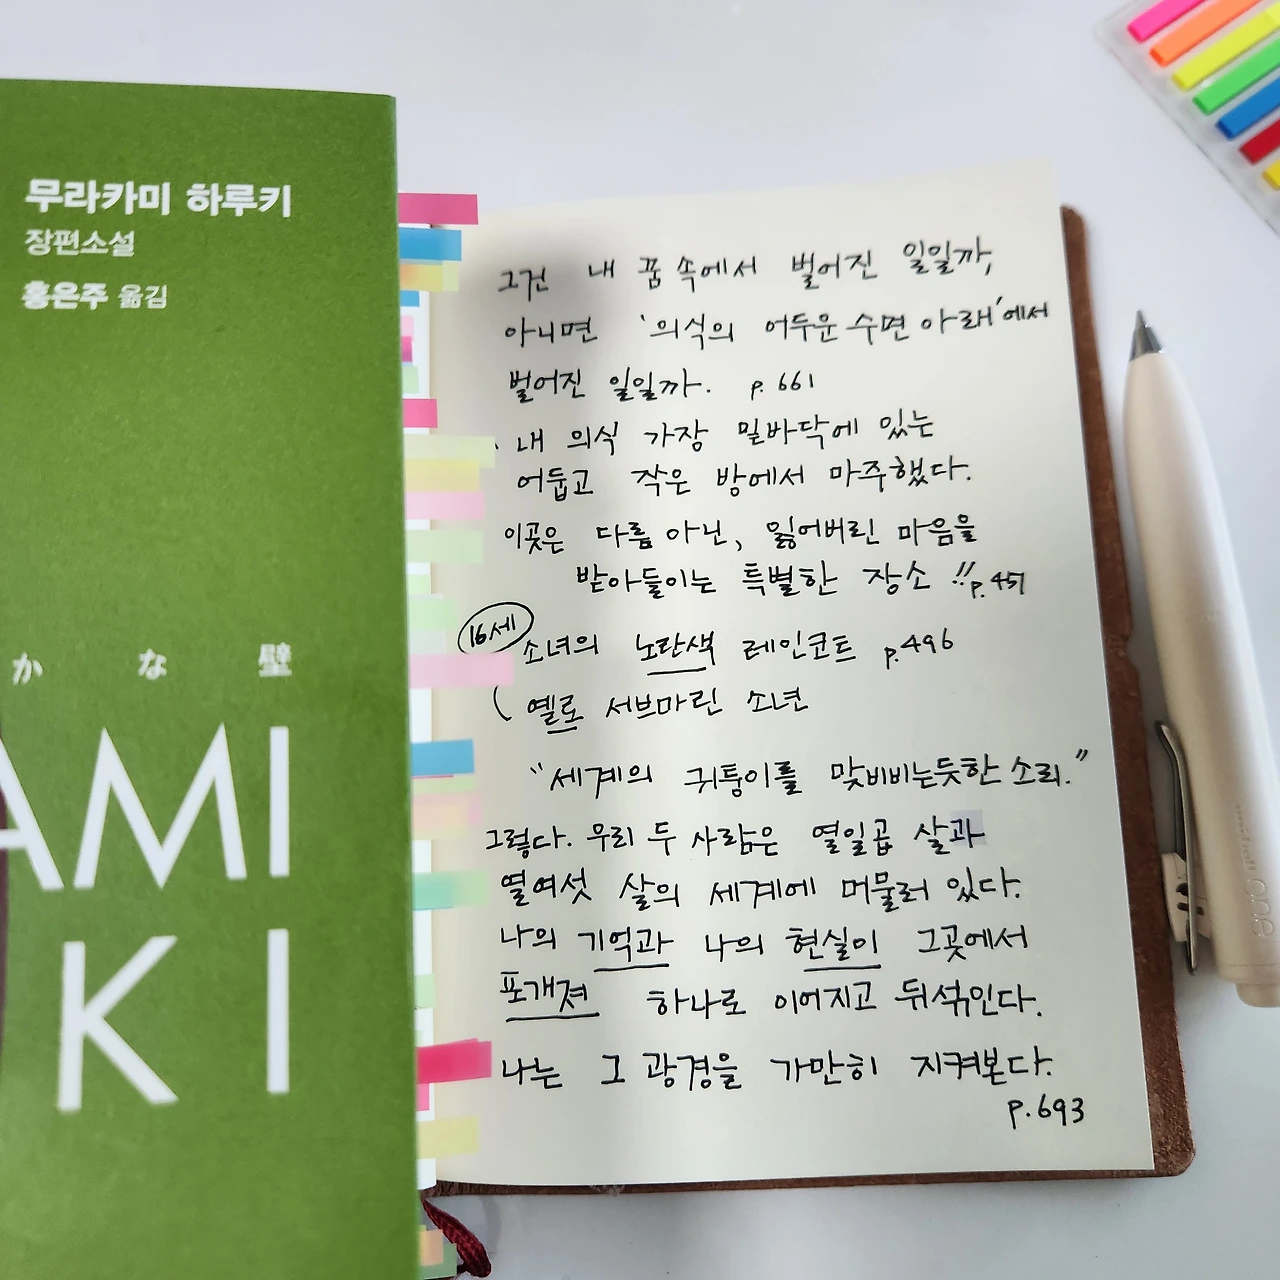 무라카미 하루키
장편소설
홍은주 옮김
かな壁
AMI
KI
그건 내 꿈 속에서 벌어진 일일까,
아니면 '의식의 어두운 수면 아래'에서
벌어진 일일까. p. 661
내 의식 가장 밑바닥에 있는
어둡고 작은 방에서 마주했다.
이곳은 다름 아닌, 잃어버린 마음을
받아들이는 특별한 장소!! p.451
16세
소녀의 노란색 레인코트 p.496
옐로 서브마린 소년
"세계의 귀퉁이를 맞비비는듯한 소리."
그렇다. 우리 두 사람은 열일곱 살과
열여섯 살의 세계에 머물러 있다.
나의 기억과 나의 현실이 그곳에서
포개져 하나로 이어지고 뒤섞인다.
나는 그 광경을 가만히 지켜본다.
p.693
one